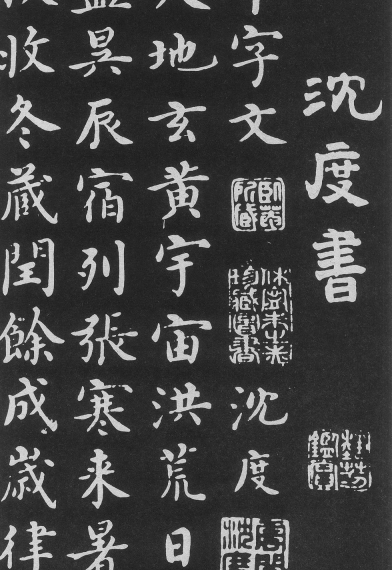 沈度書
千字文 沈度
天地玄黄宇宙洪荒日
盈昃辰宿列張寒来暑
收冬藏閏餘成歲律